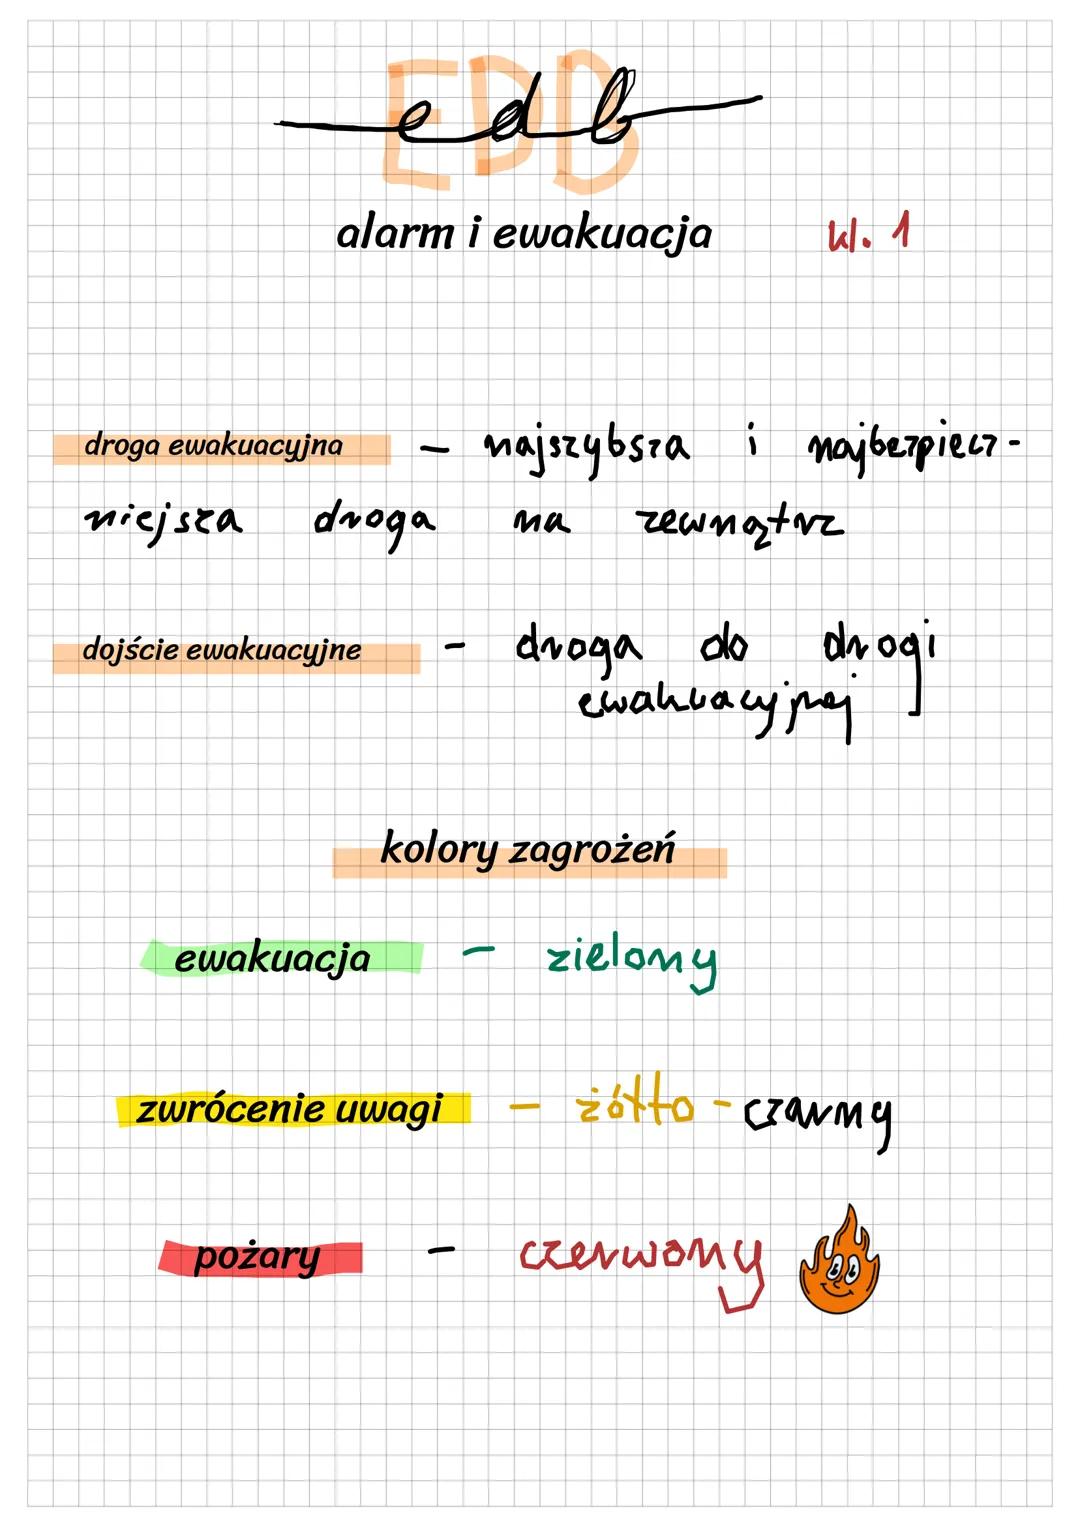 EDB
edb
alarm i ewakuacja kl. 1
droga ewakuacyjna – najszybsza i najbezpiecz-
niejsza droga na zewnątrz
dojście ewakuacyjne - droga do drogi
ewakuacyjnej
kolory zagrożeń
ewakuacja - zielony
zwrócenie uwagi - żółto-czarny
pożary - czerwony